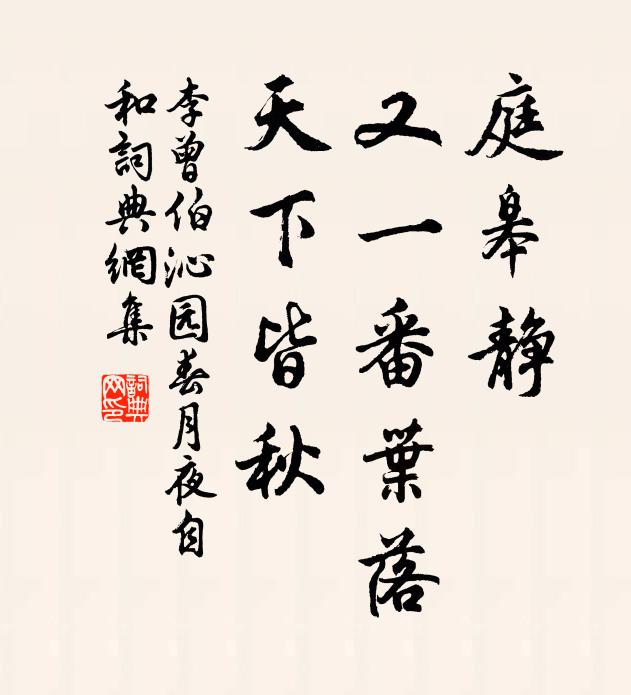 庭皋静
又一番葉落
天下皆秋
李曾伯沁园春月夜自
和詞典網集
詞典
网印